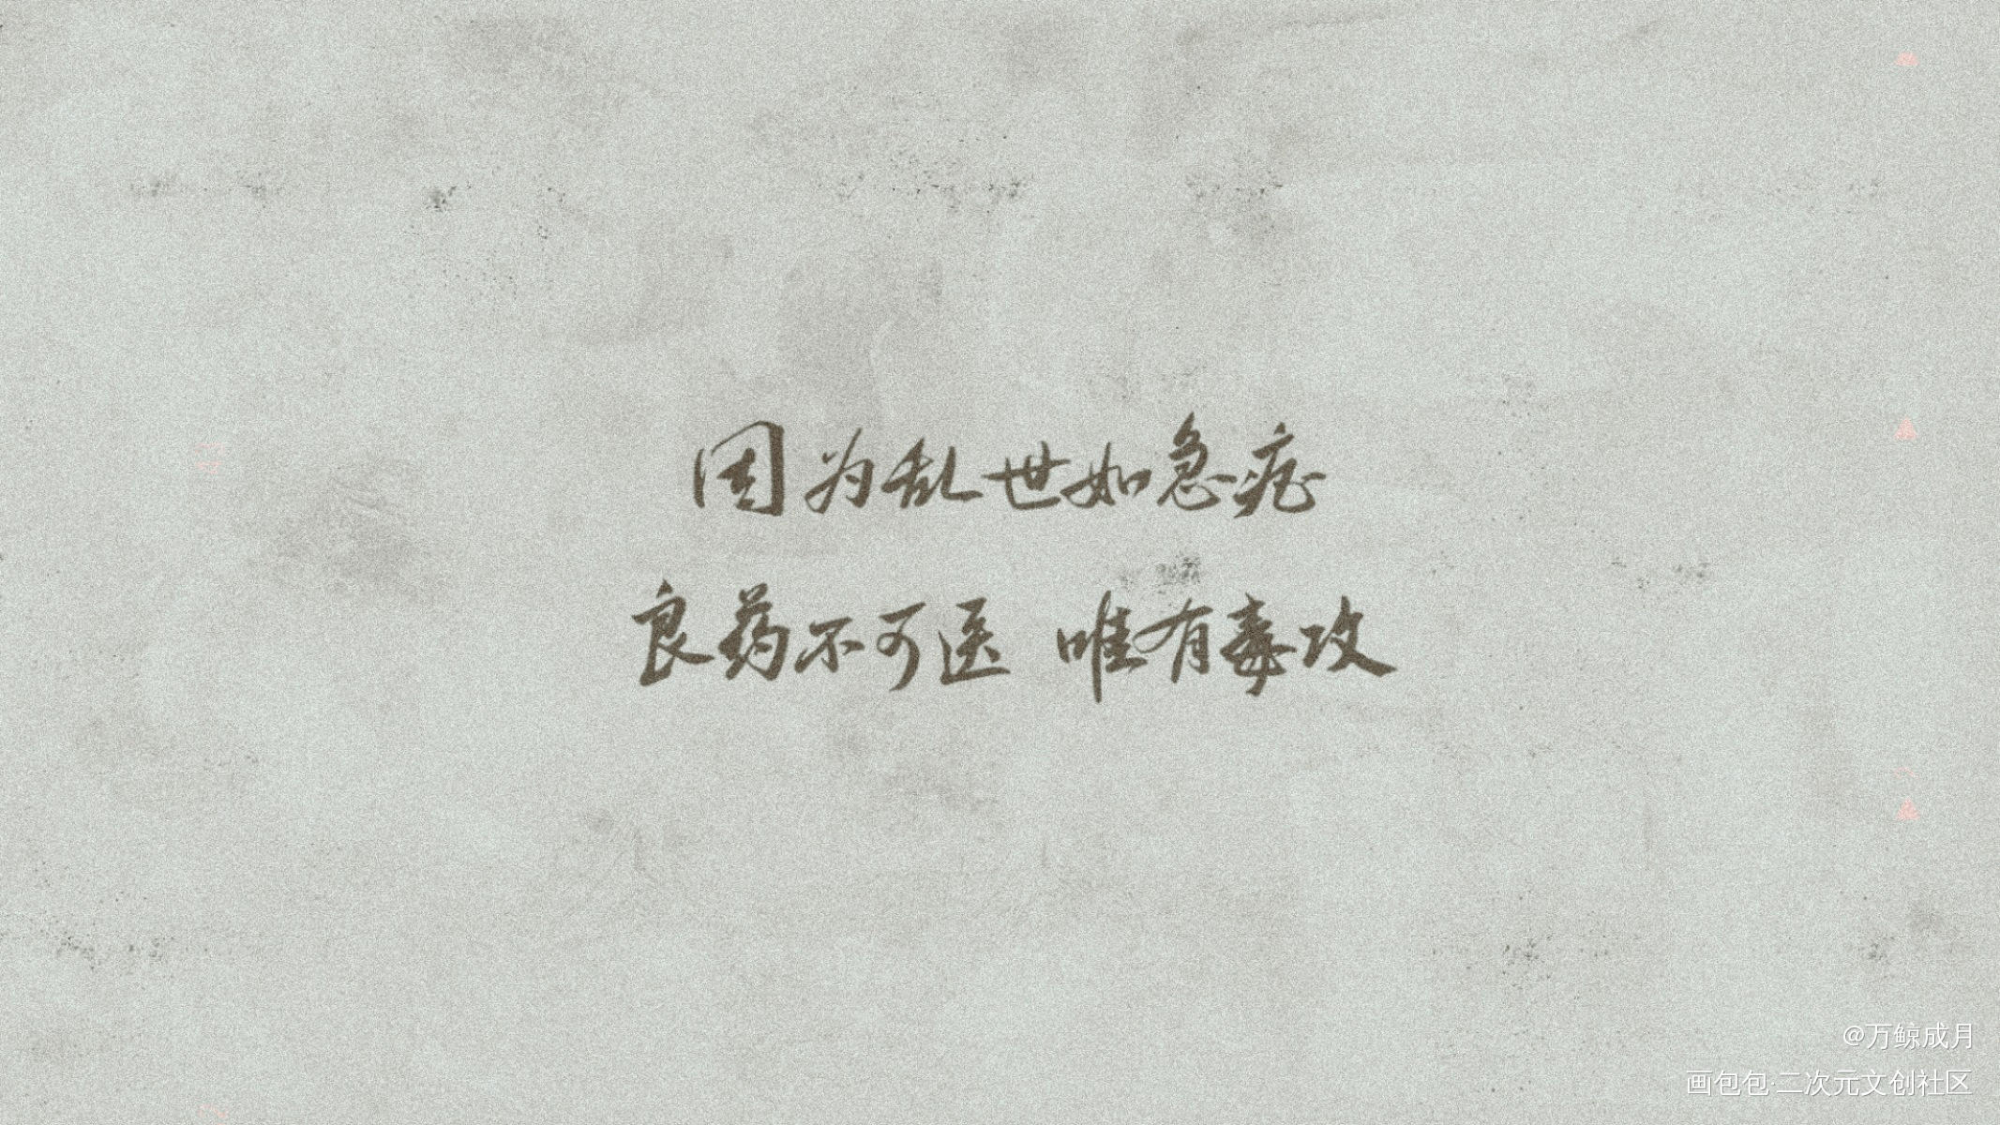 因为乱世如急症
良药不可医 唯有毒攻
@万鲸成月
画包包·二次元文创社区